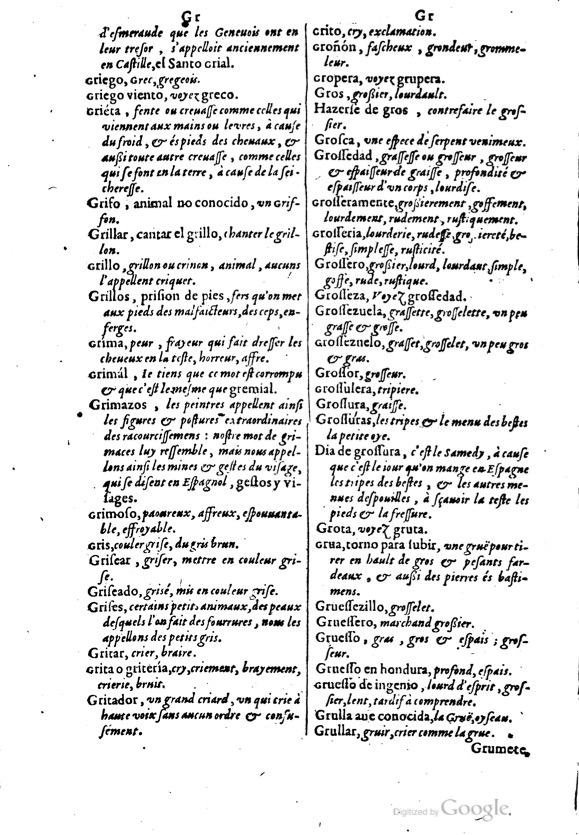 Gr
d'esmeraude que les Geneuois ont en
leur tresor, s'appelloit anciennement
en Castille, el Santo Grial.
Griego, Grec, gregeois.
Griego viento, voyez greco.
Griéta, fente ou creuasse comme celles qui
viennent aux mains ou leures, à cause
du froid, & és pieds des cheuaux, &
aussi toute autre creuasse, comme celles
qui se font en la terre, à cause de la sei-
cheresse.
Grifo, animal no conocido, vn Grif-
fon.
Grillar, cantar el grillo, chanter le gril-
lon.
Grillo, grillon ou crinon, animal, aucuns
l'appellent criquet.
Grillos, prision de pies, fers qu'on met
aux pieds des malfaicteurs, des ceps, en-
ferges.
Grima, peur, frayeur qui fait dresser les
cheueux en la teste, horreur, affre.
Grimál, ie tiens que ce mot est corrompu
& que c'est le mesme que gremial.
Grimazos, les peintres appellent ainsi
les figures & postures extraordinaires
des racourcissemens : nostre mot de gri-
maces luy ressemble, mais nous appel-
lons ainsi les mines & gestes du visage,
qui se disent en Espagnol, gestos y vi-
sages.
Grimoso, paoureux, affreux, espouuanta-
ble, effroyable.
Gris, couler grise, du gris brun.
Grisear, griser, mettre en couleur gri-
se.
Griseado, grisé, mis en couleur grise.
Grises, certains petits animaux, des peaux
desquels l'on fait des fourrures, nous les
appellons des petits gris.
Gritar, crier, braire.
Grita o griteria, cry, criement, brayement,
crierie, bruit.
Gritador, vn grand criard, vn qui crie à
haute voix sans aucun ordre & confu-
sément.
Gr
Grito, cry, exclamation.
Groñón, fascheux, grondeur, gromme-
leur.
Gropera, voyez grupera.
Gros, grossier, lourdault.
Hazerse de gros, contrefaire le gros-
sier.
Grosca, vne espece de serpent venimeux.
Grossedad, graisse ou grosseur, grosseur
& espaisseur de graisse, profondité &
espaisseur d'vn corps, lourdise.
Grosseramente, grossierement, goffement,
lourdement, rudement, rustiquement.
Grosseria, lourderie, rudesse, grossiereté, be-
stise, simplesse, rusticité.
Grossero, grossier, lourd, lourdaut, simple,
goffe, rude, rustique.
Grosseza, Voyez grossedad.
Grossezuela, grassette, grosselette, vn peu
grasse & grosse.
Grossezuelo, grasset, grosselet, vn peu gros
& gras.
Grossor, grosseur.
Grossulera, tripiere.
Grossura, graisse.
Grossuras, les tripes & le menu des bestes
la petite oye.
Dia de grossura, c'est le Samedy, à cause
que c'est le iour qu'on mange en Espagne
les tripes des bestes, & les autres me-
nues despouilles, à sçauoir la teste les
pieds & la fressure.
Grota, voyez gruta.
Grua, torno para subir, vne gruë pour ti-
rer en hault de gros & pesants far-
deaux, & aussi des pierres és basti-
mens.
Gruessezillo, grosselet.
Gruessero, marchand grossier.
Gruesso, gras, gros & espais ; gros-
seur.
Gruesso en hondura, profond, espais.
Gruesso de ingenio, lourd d'esprit, gros-
sier, lent, tardif à comprendre.
Grulla aue conocida, la Gruë, oyseau.
Grullar, gruir, crier comme la grue.
Grumete,
Digitized by Google